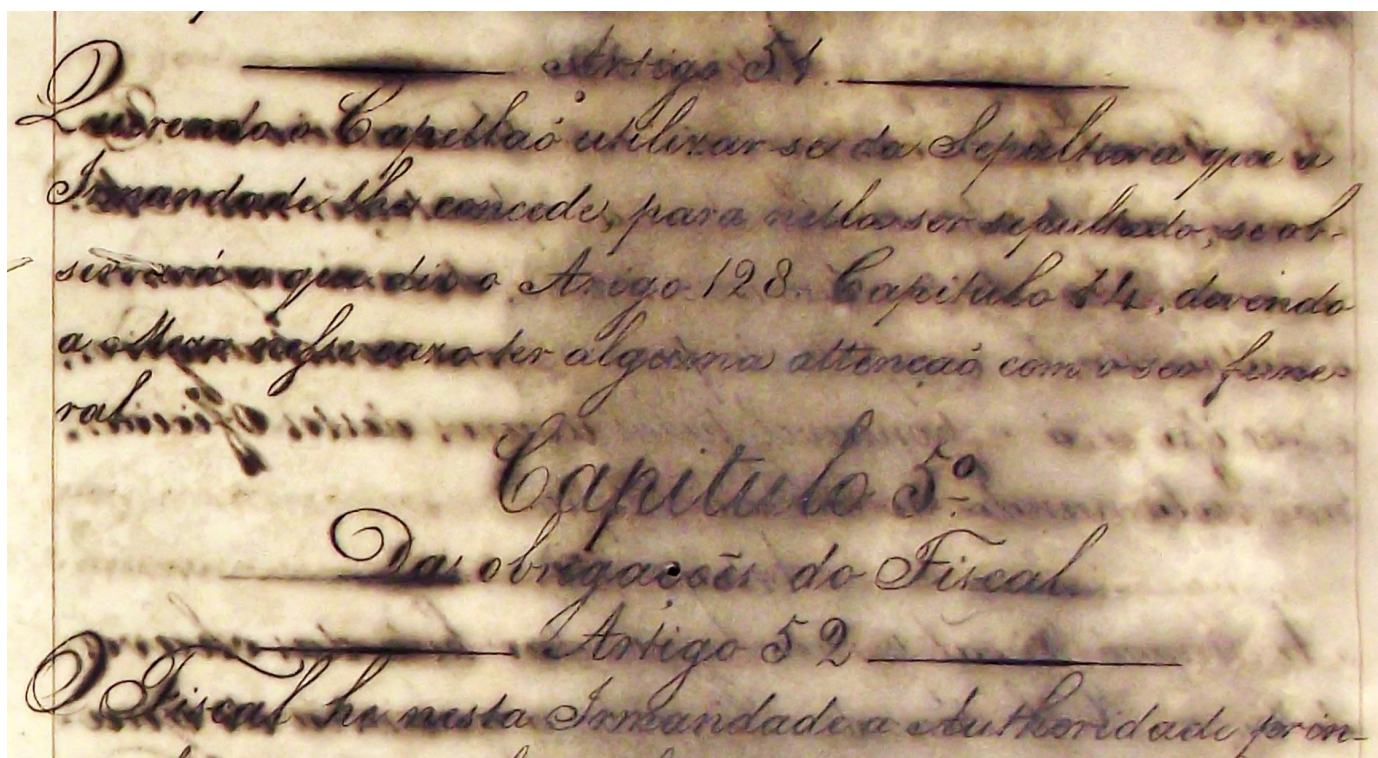 Artigo 51.
Querendo o Capellaõ utilizar se da Sepultura que a
Irmandade lhe concede, para nella ser sepultado, se ob-
servará o que diz o Arigo 128. Capitulo 14, devendo
a Meza nesse cazo ter alguma attençaõ com o seo fune-
ral.
Capitulo 5º
Das obrigações do Fiscal.
Artigo 52
O Fiscal he nesta Irmandade a Authoridade prin-